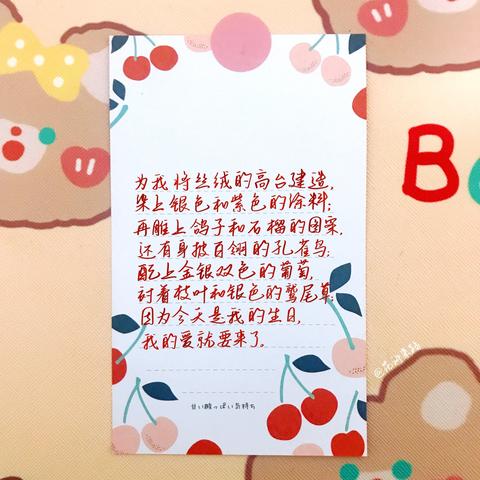 为我将丝绒的高台建造,
染上银色和紫色的涂料;
再雕上鸽子和石榴的图案,
还有身披百翎的孔雀鸟;
配上金银双色的葡萄,
衬着枝叶和银色的鸢尾草;
因为今天是我的生日,
我的爱就要来了。
甘い酸っぱい気持ち
B